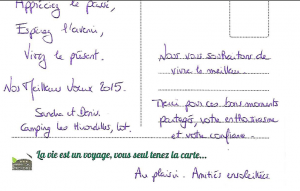 Appréciez le passé,
Espérez l'avenir,
Vivez le présent.
Nos Meilleurs Vœux 2015.
Sandra et Denis
Camping les Hirondelles, Lot.
Nous vous souhaitons de
vivre le meilleur.
Merci pour ces bons moments
partagés, votre enthousiasme
et votre confiance.
La vie est un voyage, vous seul tenez la carte...
Au plaisir. Amitiés ensoleillées